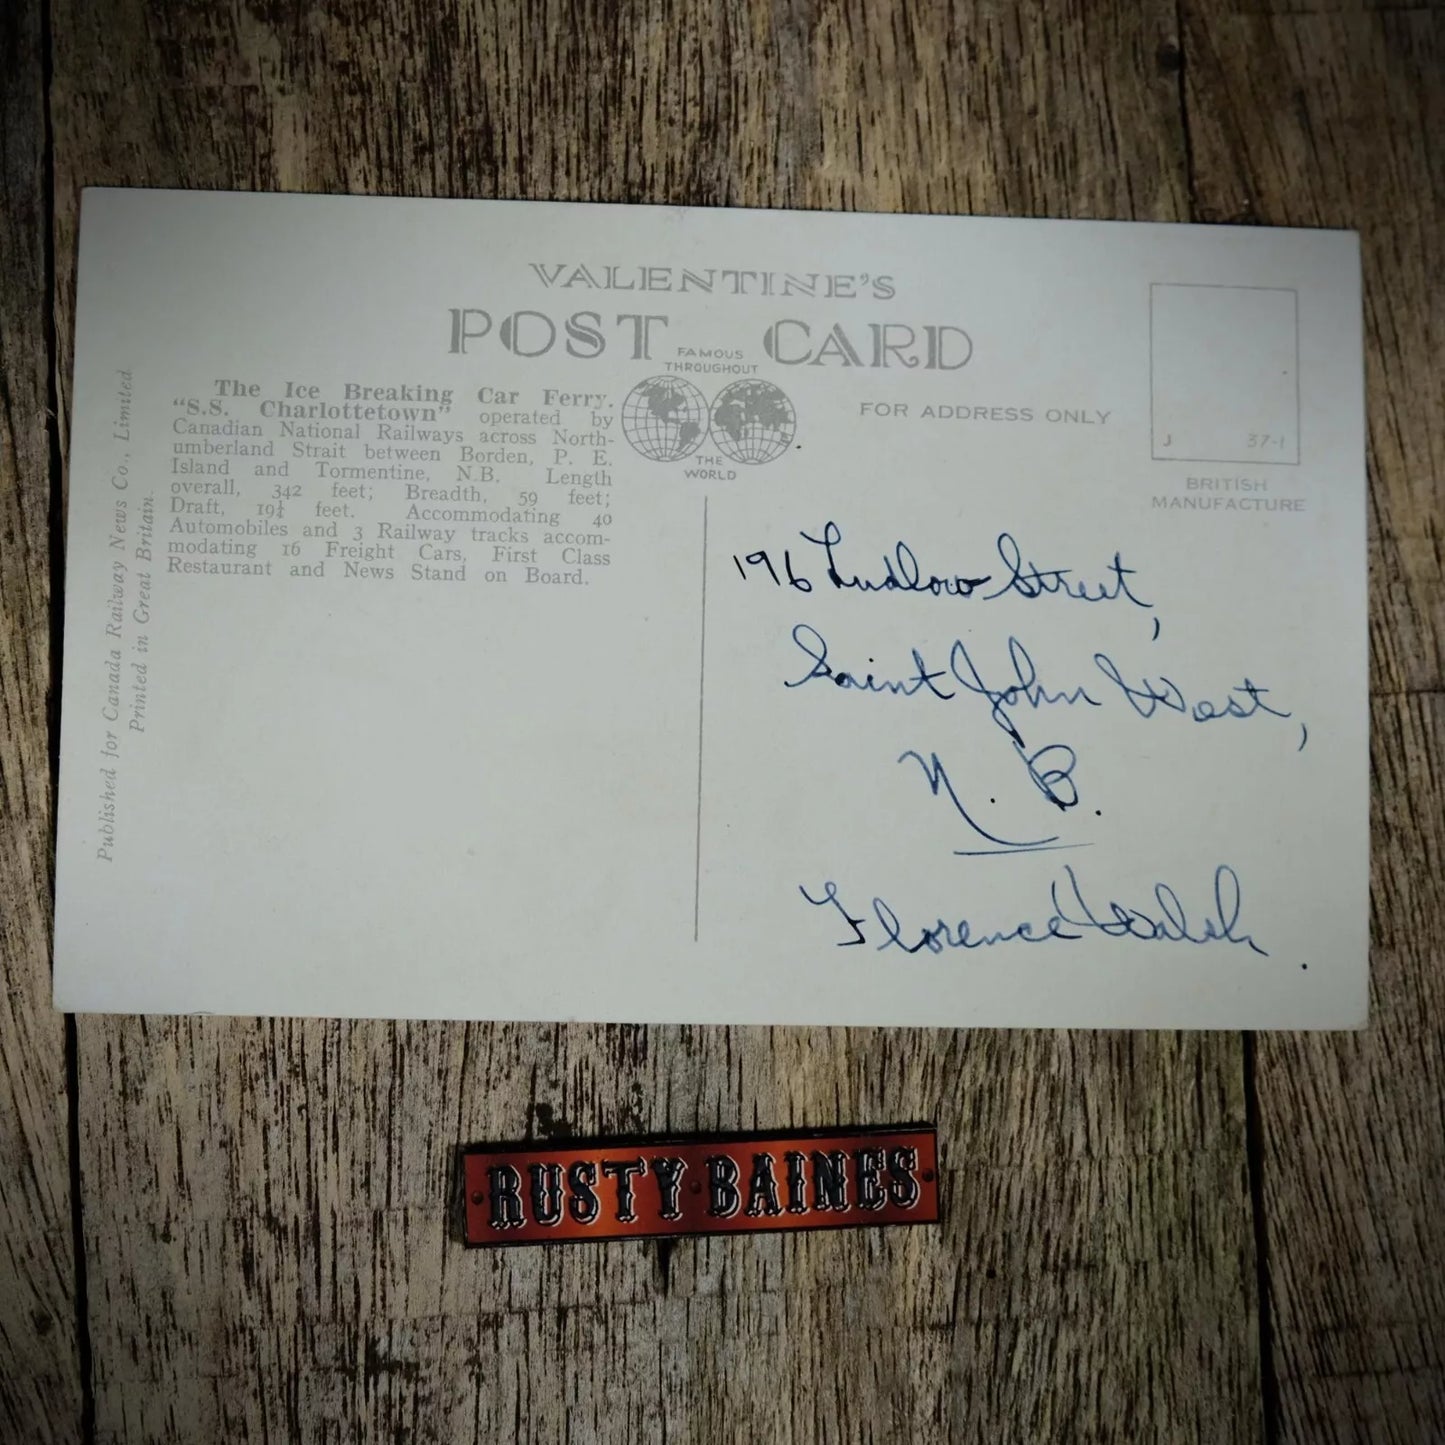 VALENTINE'S
POST CARD
FAMOUS
THROUGHOUT
THE
WORLD
FOR ADDRESS ONLY
J 37-1
BRITISH
MANUFACTURE
The Ice Breaking Car Ferry.
"S.S. Charlottetown" operated by
Canadian National Railways across North-
umberland Strait between Borden, P. E.
Island and Tormentine, N.B. Length
overall, 342 feet; Breadth, 59 feet;
Draft, 19¼ feet. Accommodating 40
Automobiles and 3 Railway tracks accom-
modating 16 Freight Cars, First Class
Restaurant and News Stand on Board.
Published for Canada Railway News Co., Limited.
Printed in Great Britain.
196 Ludlow Street,
Saint John West,
N. B.
Florence Walsh.
RUSTY BAINES